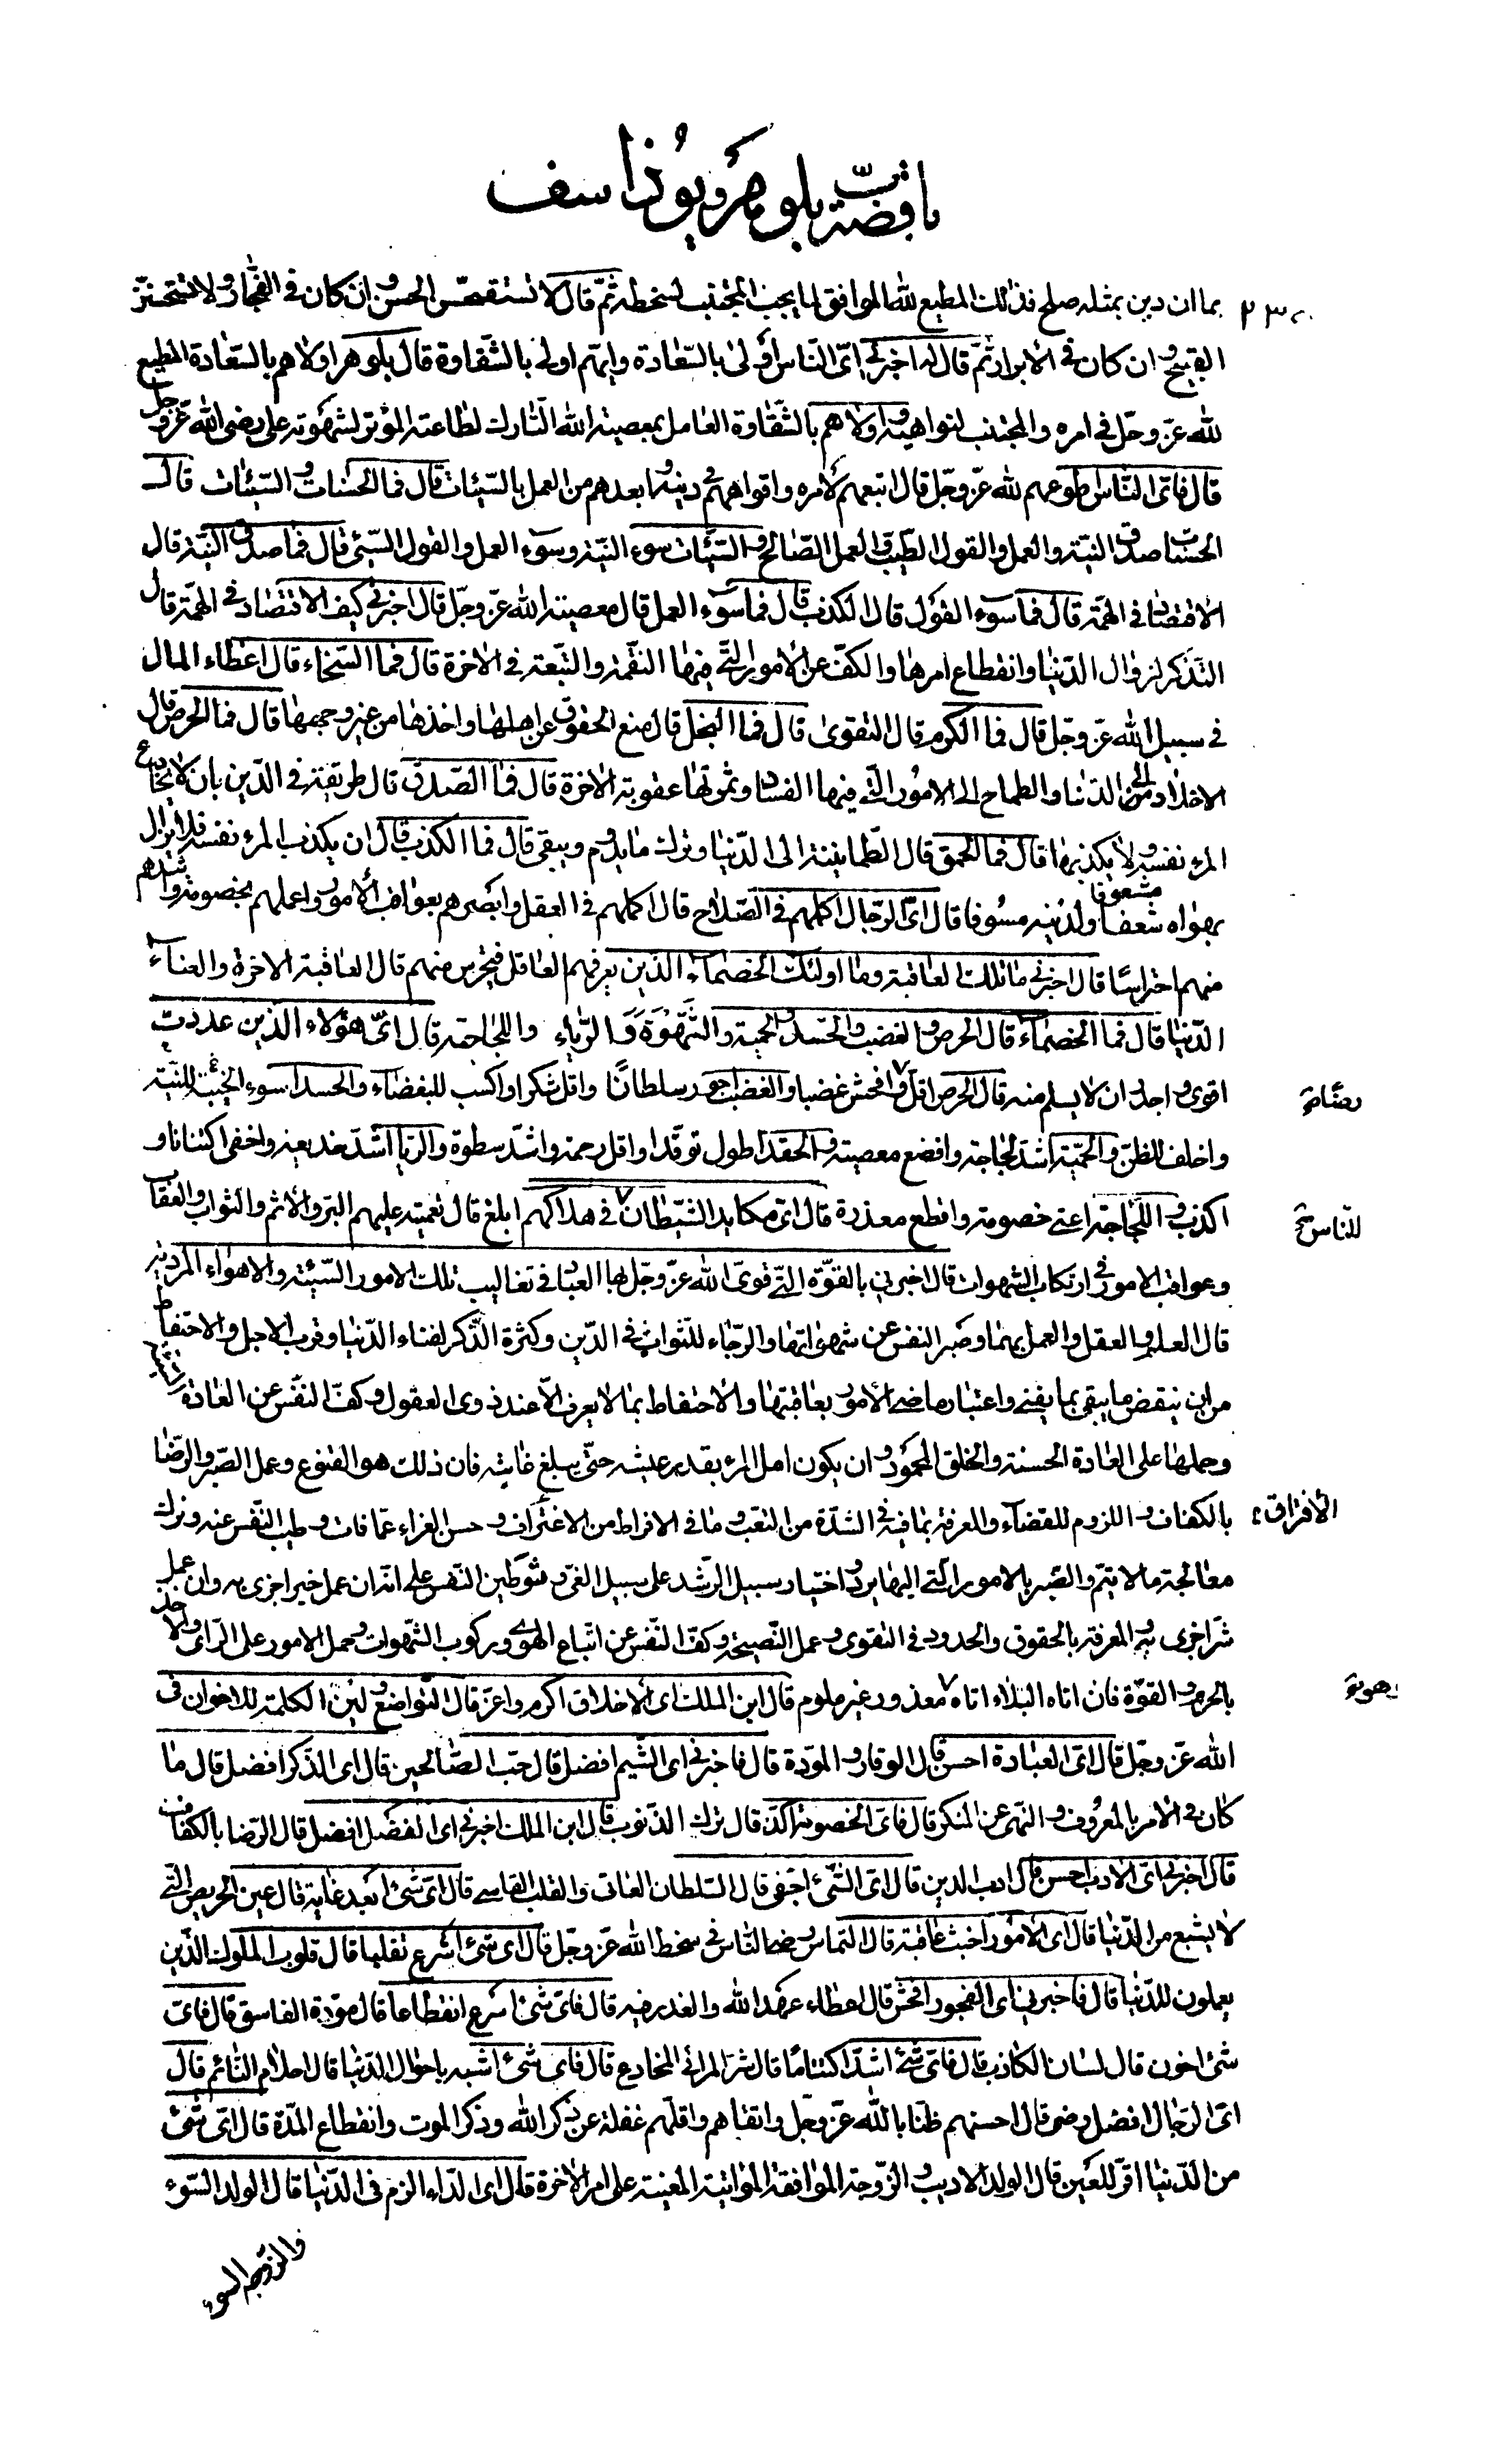 باقي قصّة بلوهر و يوذاسف
٢٣٠
بما ان دين بمثله صلح فذلك المطيع لله الموافق لما يحب المجتنب لسخطه ثمّ قال لا تستقصّ الحسن و ان كان في الفجّار و لا تستحسننّ
القبيح و ان كان في الأبرار ثمّ قال له اخبرني ايّ النّاس أولى بالسّعادة و ايّهم اولى بالشّقاوة قال بلوهر اولاهم بالسّعادة المطيع
لله عزّ وجلّ في امره و المجتنب لنواهيه و اولاهم بالشّقاوة العامل بمعصية الله التّارك لطاعته المؤثر لشهوته على رضى الله عزّ و جلّ
قال فايّ النّاس اطوعهم لله عزّ وجلّ قال اتبعهم لأمره و اقواهم في دينه و ابعدهم من العمل بالسّيئات قال فما الحسنات و السّيئات قال
الحسنات صدق النيّة و العمل و القول الطيّب و العمل الصّالح و السّيّئات سوء النيّة و سوء العمل و القول السّيّئ قال فما صدق النيّة قال
الاقتصاد في الهمّة قال فما سوء القول قال الكذب قال فما سوء العمل قال معصية الله عزّ وجلّ قال اخبرني كيف الاقتصاد في الهمّة قال
التّذكّر لزوال الدّنيا و انقطاع امرها و الكفّ عن الأمور الّتي فيها النّقمة و التّبعة في الاخرة قال فما السّخاء قال اعطاء المال
في سبيل الله عزّ وجلّ قال فما الكرم قال التقوى قال فما البخل قال منع الحقوق عن اهلها و اخذها من غير وجهها قال فما الحرص قال
الاخلاد الى الدّنيا و الطماح الى الامور الّتي فيها الفساد و ثمرتها عقوبة الاخرة قال فما الصّدق قال طريقة في الدّين بان لا يخادع
المرء نفسه و لا يكذبها قال فما الحمق قال الطّمانينة الى الدّنيا و ترك ما يدوم و يبقى قال فما الكذب قال ان يكذب المرء نفسه فلا يزال
بهواه شعفا و لدينه مسوفا قال ايّ الرّجال اكملهم في الصّلاح قال اكملهم في العقل و ابصرهم بعواقب الأمور و اعملهم بخصومه و اشدّهم
مشعوفا
منهم احتراسا قال اخبرني ما تلك العاقبة و ما اولئك الخصماء الّذين يعرفهم العاقل فيحترس منهم قال العاقبة الاخرة و العناء
الدّنيا قال فما الخصماء قال الحرص و الغضب و الحسد و الحمية و الشّهوة و الرّياء و اللجاجة قال ايّ هؤلاء الذين عددت
اقوى و اجدر ان لا يسلم منه قال الحرص اقلّ و افحش غضبا و الغضب اجور سلطانًا و اقل شكرا و اكسب للبغضاء و الحسد اسوء الخيبة للنيّة
رضًا
و اخلف للظنّ و الحميّة اشدّ لجاجة و افضع معصية و الحقد اطول توقّدا و اقل رحمة و اشدّ سطوة و الرّيا اشدّ خديعة و اخفى اكتنانا و
اكذب و اللّجاجة اعتى خصومة و اقطع معذرة قال ايّ مكايد الشّيطان في هلاكهم ابلغ قال تعميته عليهم البرّ و الاثم و الثواب و العقاب
للنّاس
و عواقب الامور في ارتكاب الشهوات قال اخبرني بالقوّة الّتي قوّى الله عزّ وجلّ بها العباد في تغاليب تلك الامور السّيئة و الاهواء المردية
قال العلم و العقل و العمل بهما و صبر النفس عن شهواتها و الرّجاء للثواب في الدّين و كثرة الذّكر لفناء الدّنيا و قرب الاجل و الاحتفاظ
من ان ينقض ما يبقى بما يفنى و اعتبار ماضي الأمور بعاقبتها و الاحتفاظ بما لا يعرف الّا عند ذوى العقول و كفّ النّفس عن العادة السّيّئة
و حملها على العادة الحسنة و الخلق المحمود و ان يكون امل المرء بقدر عيشه حتّى يبلغ غايته فان ذلك هو القنوع و عمل الصّبر و الرّضا
بالكفاف و اللزوم للقضاء و المعرفة بما فيه في الشدّة من التعب و ما في الافراط من الاغتراف و حسن العزاء عمّا فات و طيب النّفس عنه و ترك
الأفتراق
معالجة ما لا يتم و الصّبر بالامور الّتي اليها يردّ و اختيار سبيل الرّشد على سبيل الغىّ و توطين النّفس على انّه ان عمل خيرا جزى به و ان عمل
شرّا جزى به و المعرفة بالحقوق و الحدود في التقوى و عمل النّصيحة و كفّ النّفس عن اتّباع الهوى و ركوب الشّهوات و حمل الامور على الرّاى و الاخذ
بالحزم و القوّة فان اتاه البلاء اتاه و هو معذور غير ملوم قال ابن الملك اى الأخلاق اكرم و اعزّ قال التّواضع و لين الكلمة للاخوان في
الله عزّ وجلّ قال ايّ العبادة احسن قال الوقار و المودّة قال فاخبرني اى الشّيم افضل قال حبّ الصّالحين قال اى الذّكر افضل قال ما
كان في الأمر بالمعروف و النّهى عن المنكر قال فايّ الخصومة الدّ قال ترك الذّنوب قال ابن الملك اخبرني اى الفضل افضل قال الرّضا بالكفاف
قال اخبرني ايّ الادب احسن قال ادب الدين قال ايّ الشّيء اجفى قال السّلطان العاتى و القلب القاسى قال ايّ شيء ابعد غاية قال عين الحريص الّتي
لا يشبع من الدّنيا قال اى الأمور اخبث عاقبة قال التماس رضا النّاس في سخط الله عزّ وجلّ قال اى شيء اسرع تقلّبا قال قلوب الملوك الذّين
يعملون للدّنيا قال فاخبرني اى الفجور افحش قال اعطاء عهد الله و الغدر فيه قال فايّ شيء اسرع انقطاعا قال مودّة الفاسق قال فايّ
شيء اخون قال لسان الكاذب قال فايّ شيء اشدّ اكتتاما قال شرّ المرائى المخادع قال فاى شيء اشبه باحوال الدّنيا قال احلام النّائم قال
ايّ الرّجال افضل رضى قال احسنهم ظنّا بالله عزّ وجلّ و اتقاهم و اقلّهم غفلة عن ذكر الله و ذكر الموت و انقطاع المدّة قال ايّ شيء
من الدّنيا اقرّ للعين قال الولد الاديب و الزّوجة الموافقة المؤاتية المعينة على امر الأخرة قال اى الدّاء الزم في الدّنيا قال الولد السّوء
و الزّوجة السوء